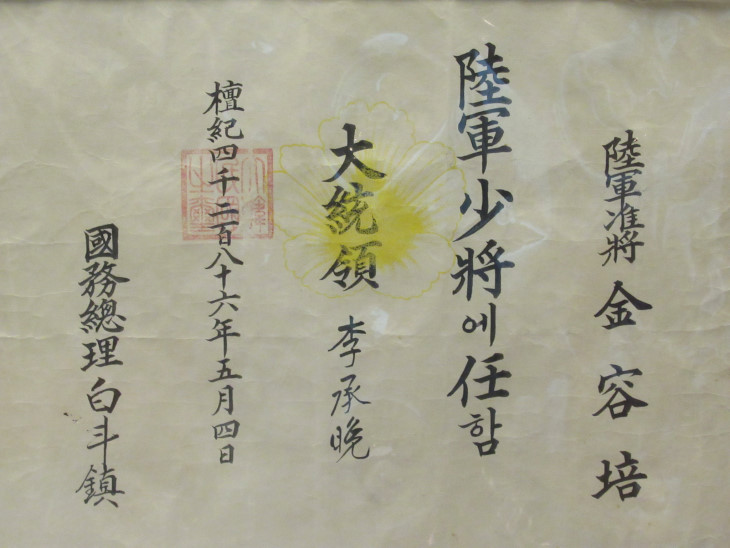 陸軍准將 金容培
陸軍少將에任함
大統領 李承晩
檀紀四千二百八十六年五月四日
國務總理 白斗鎮